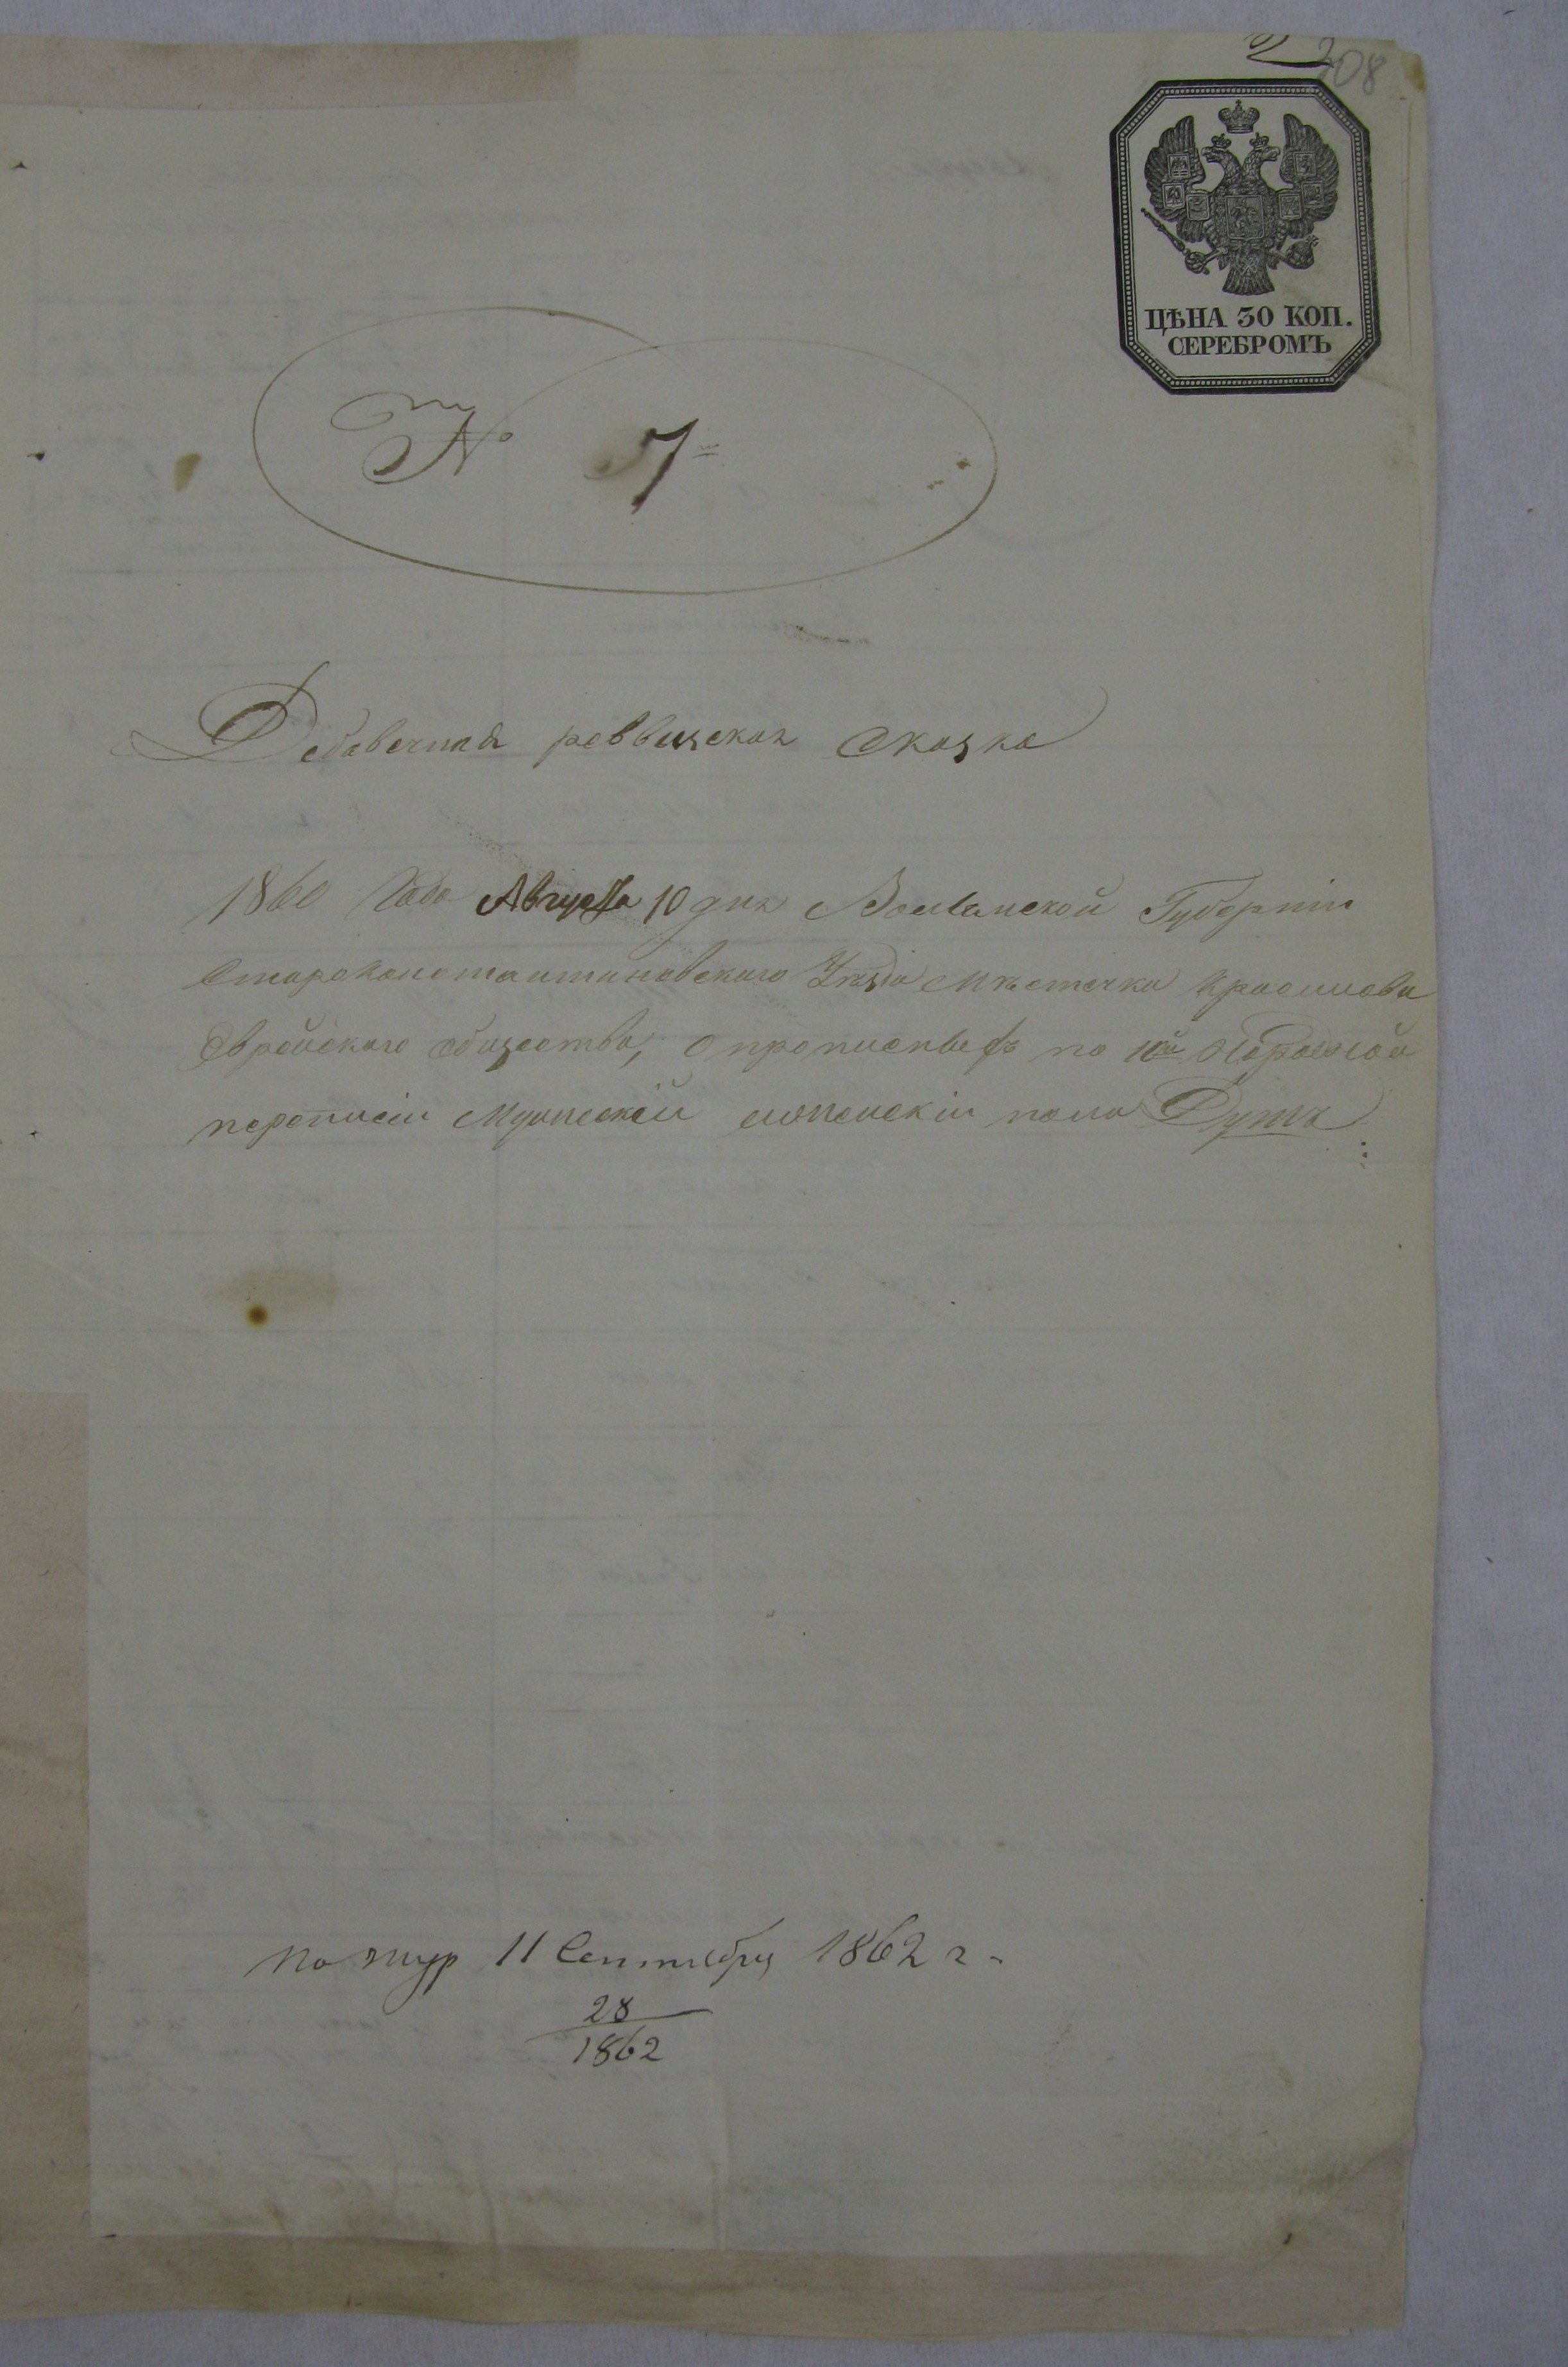 208
ЦѢНА 30 КОП.
СЕРЕБРОМЪ
№ 7
Добавочная реввизская Сказка
1860 Года Августа 10 дня Волынской Губернии
Староконстантиновского Уѣзда Мѣстечка Красилова
Еврейского общества, о прописныхъ по 10й Народной
переписи Мужеский женский пола Душъ
по жур 11 Сентября 1862 г.
28
1862